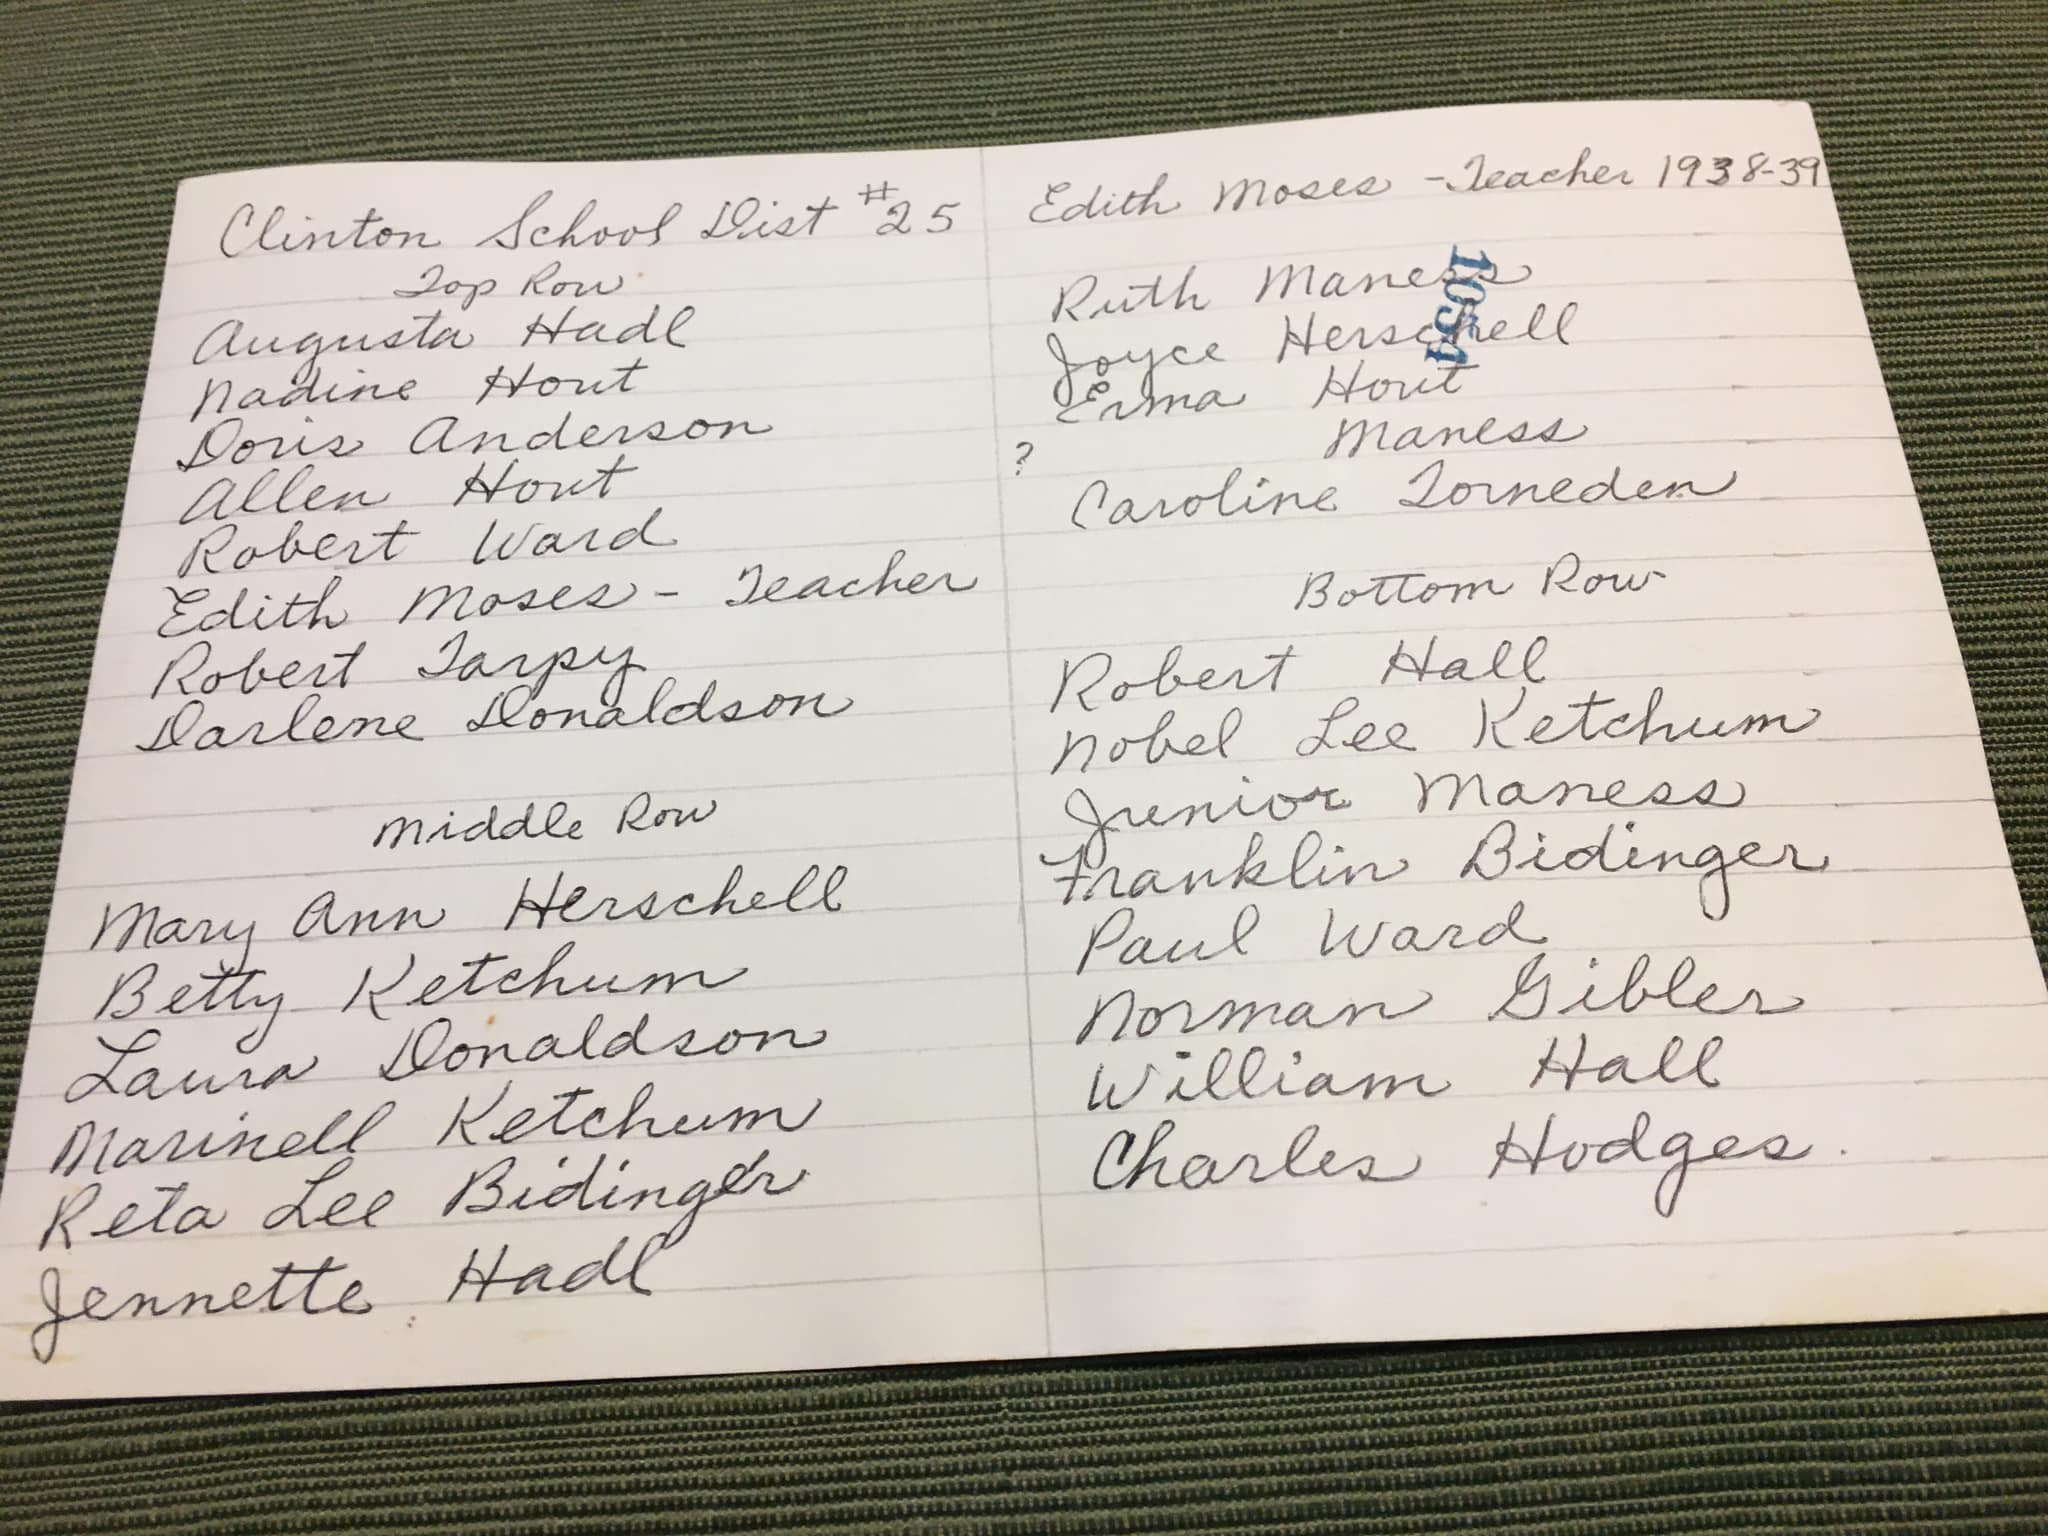 Clinton School Dist #25
Top Row
Augusta Hadl
Nadine Hout
Doris Anderson
Allen Hout
Robert Ward
Edith Moses - Teacher
Robert Tarpy
Darlene Donaldson
Middle Row
Mary Ann Herschell
Betty Ketchum
Laura Donaldson
Marinell Ketchum
Reta Lee Bidinger
Jennette Hadl
Edith Moses - Teacher 1938-39
Ruth Maness
Joyce Herschell
Erma Hout
? Maness
Caroline Torneden
Bottom Row
Robert Hall
Nobel Lee Ketchum
Junior Maness
Franklin Bidinger
Paul Ward
Norman Gibler
William Hall
Charles Hodges.
1054